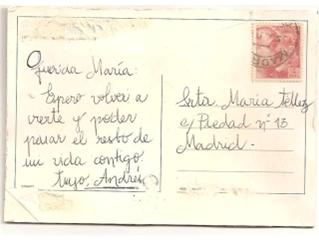 Querida María:
Espero volver a
verte y poder
pasar el resto de
mi vida contigo.
tuyo, Andrés
Srta. María Téllez
c/ Piedad nº 13
Madrid.